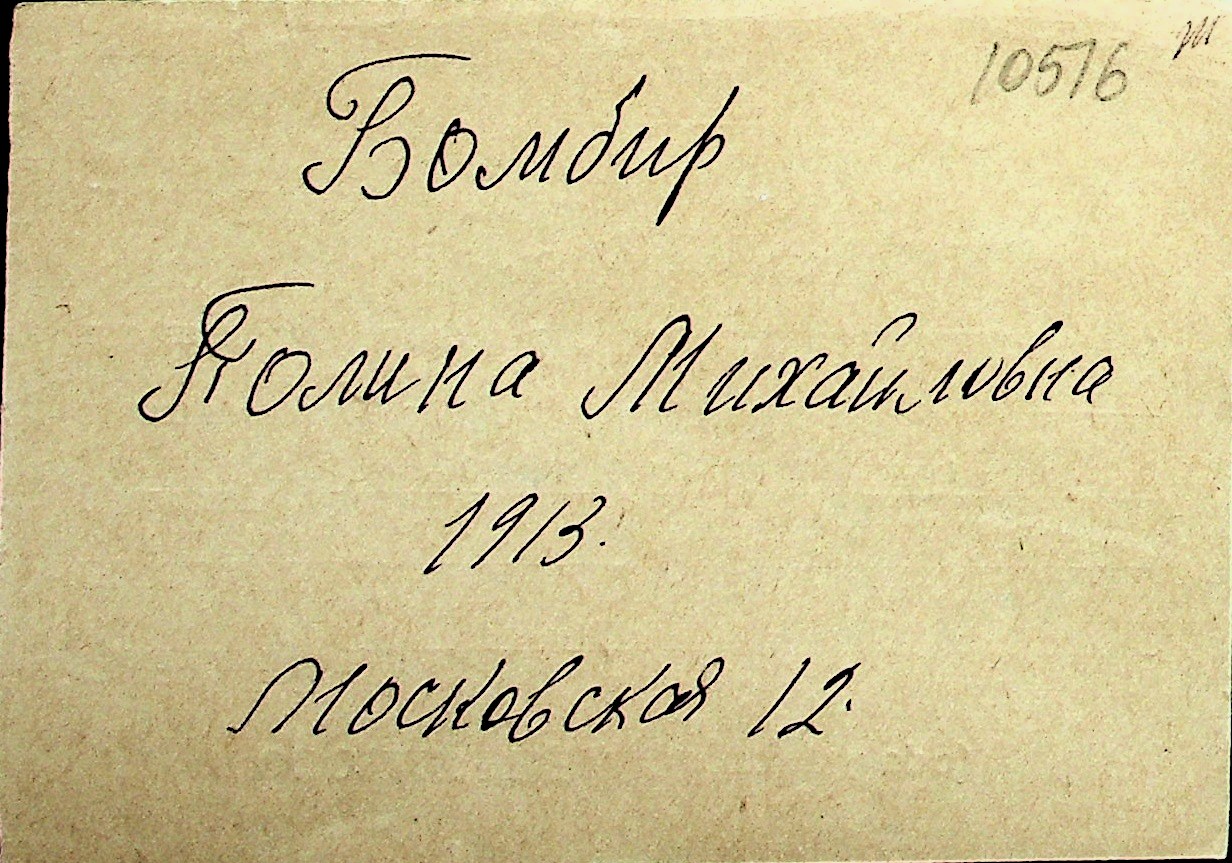 10516
Бомбир
Полина Михайловна
1913.
Московская 12.